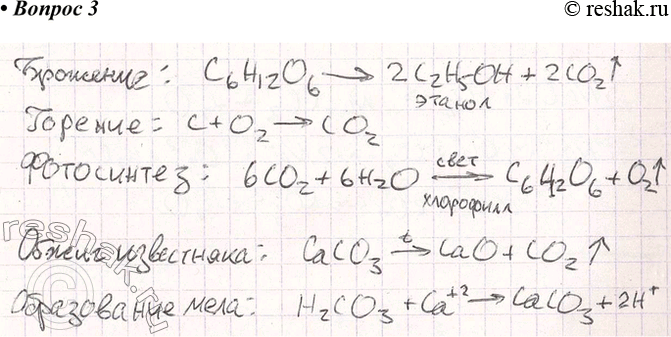 • Вопрос 3
© reshak.ru
Брожение: C6H12O6 → 2C2H5OH + 2CO2↑
этанол
Горение: C + O2 → CO2
Фотосинтез: 6CO2 + 6H2O свет → хлорофилл C6H12O6 + O2↑
Обжиг известняка: CaCO3 t→ CaO + CO2↑
Образование мела: H2CO3 + Ca+2 → CaCO3 + 2H+
© reshak.ru